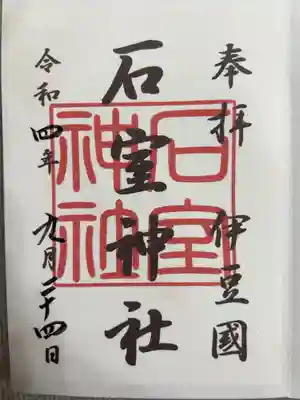 奉拝 伊豆國
石室神社
令和四年 九月二十四日
石室
神社